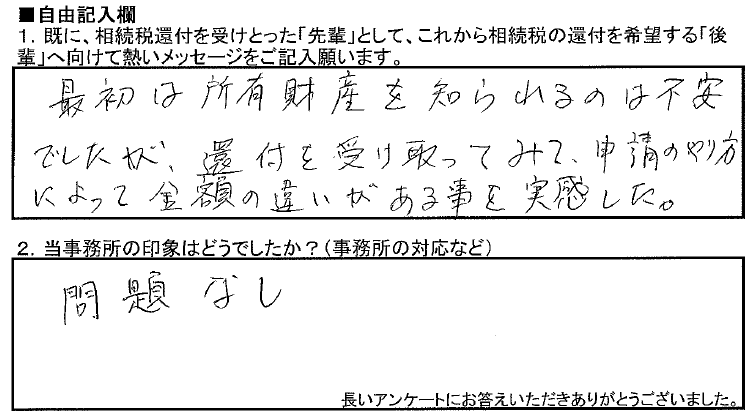 ■自由記入欄
1．既に、相続税還付を受けとった「先輩」として、これから相続税の還付を希望する「後
輩」へ向けて熱いメッセージをご記入願います。
最初は所有財産を知られるのは不安
でしたが、還付を受け取ってみて、申請のやり方
によって金額の違いがある事を実感した。
2．当事務所の印象はどうでしたか？（事務所の対応など）
問題なし
長いアンケートにお答えいただきありがとうございました。